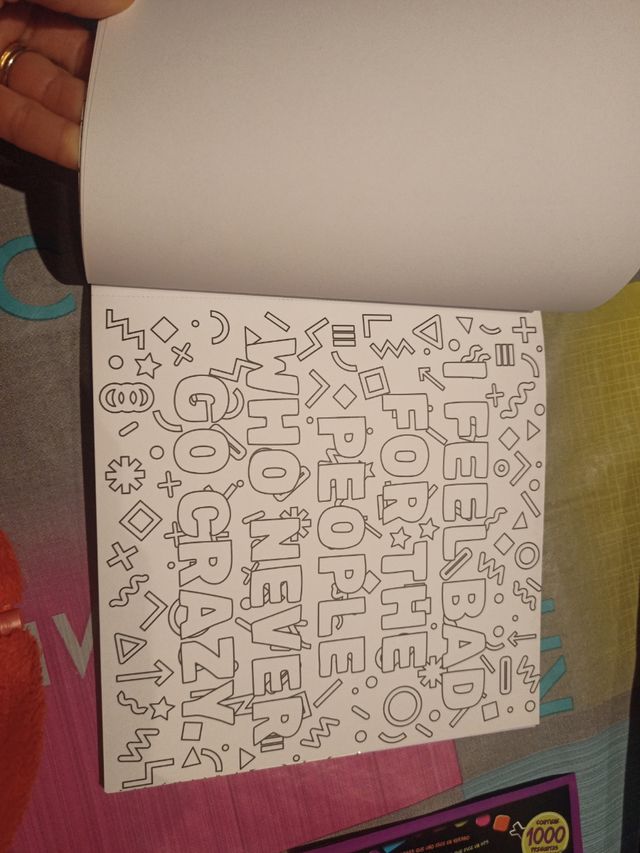 I FEEL BAD
FOR THE
PEOPLE
WHO NEVER
GO CRAZY
CONTIENE
1000
PEGATINAS